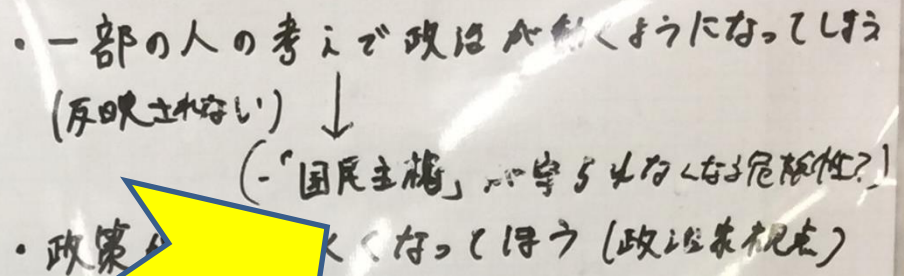 ・一部の人の考えで政治が動くようになってしまう
(反映されない)
(-「国民主権」が守られなくなる危険性?)
・政策 くなってしまう(政治家視点)